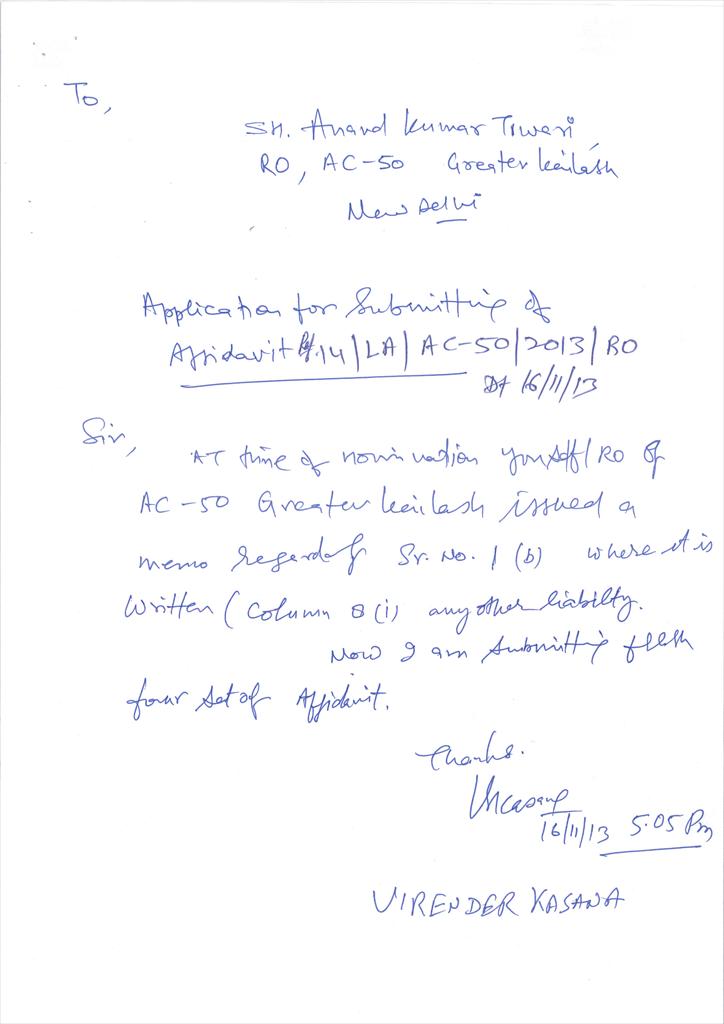 To,
SH. Anand Kumar Tiwari,
RO, AC-50 Greater Kailash
New Delhi
Application for Submitting of
Affidavit Rf.14/LA/AC-50/2013/RO
Dt 16/11/13
Sir,
AT time of nomination yourself/RO of
AC-50 Greater Kailash issued a
memo regarding Sr. No. 1 (b) where it is
Written (Column 8 (i) any other liabilty.
Now I am Submitting fresh
four set of Affidavit.
Thanks.
16/11/13 5.05 Pm
VIRENDER KASANA